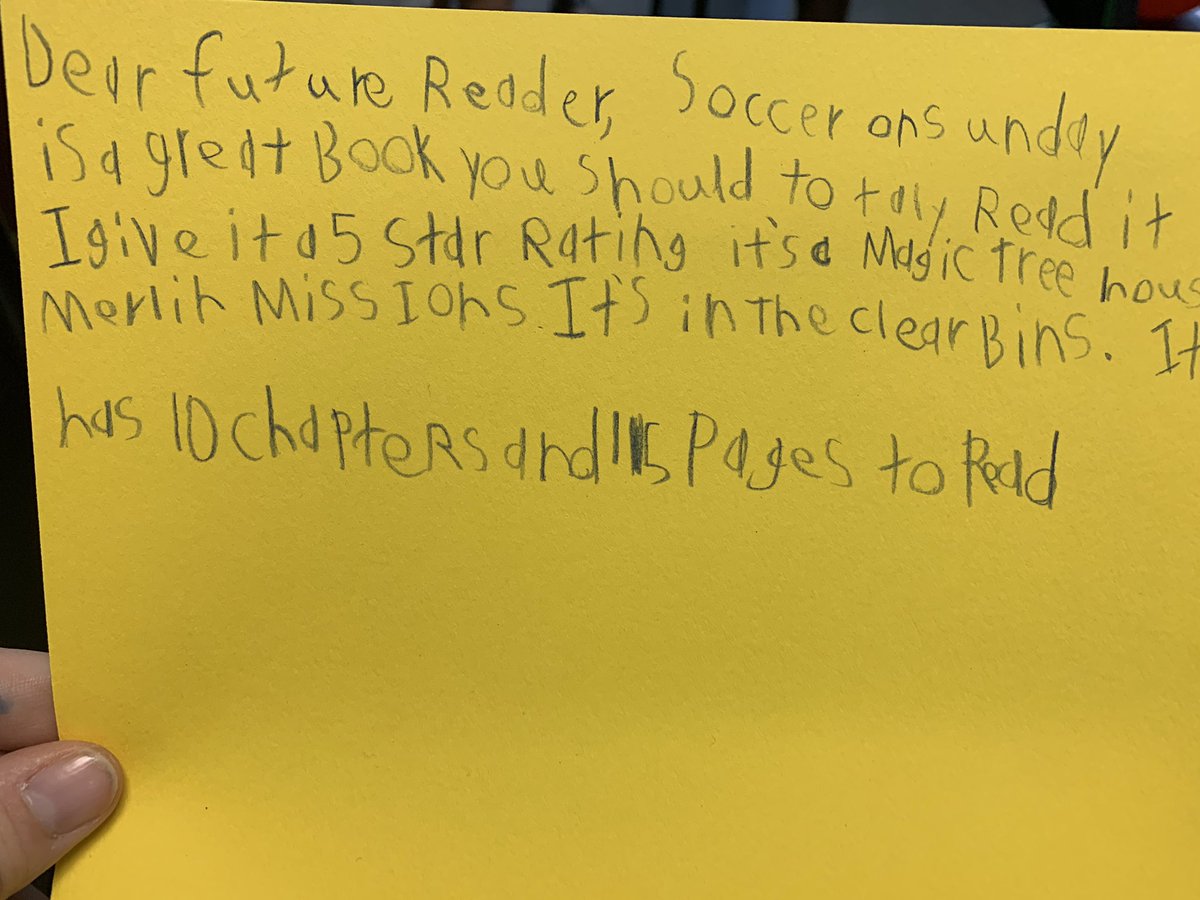 Dear future Reader, Soccer on sunday
is a great Book you should totaly Read it
I give it a 5 Star Rating it's a Magic Tree hous
Merlin Missions. It's in The clear Bins. It
has 10 chapteRs and 115 Pages to Read